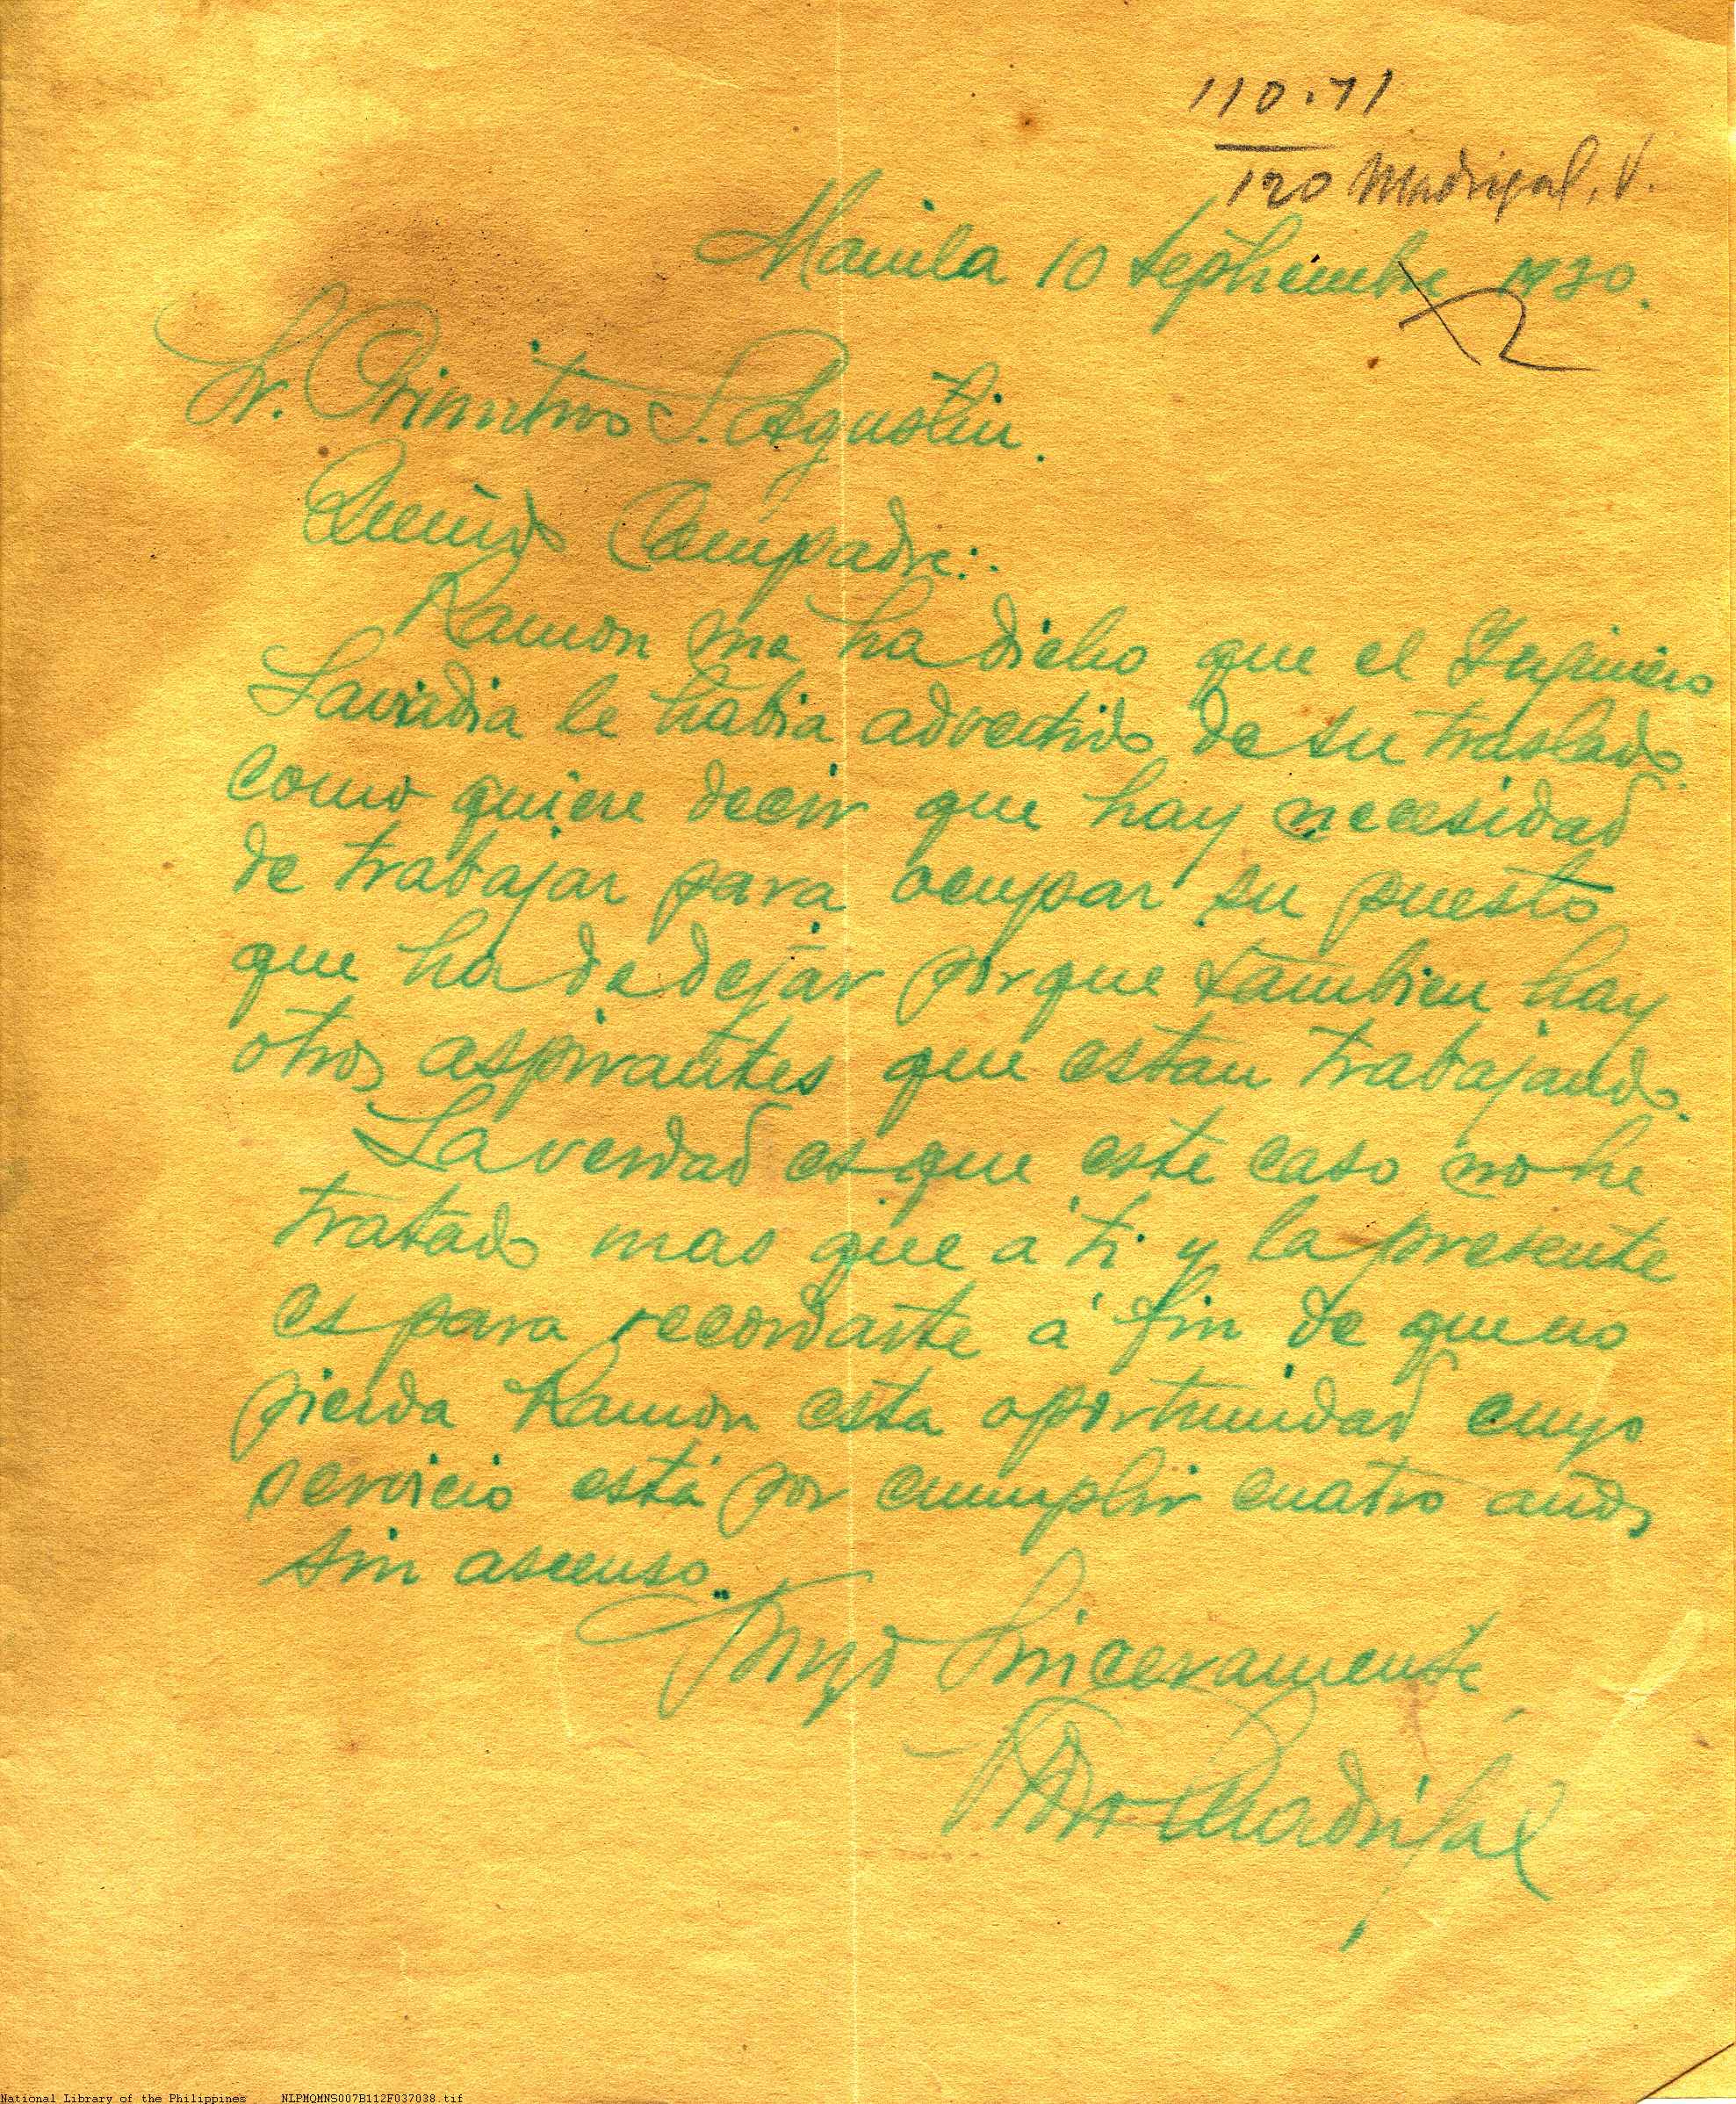 110.71
120 Madrigal, V.
Manila 10 Septiembre 1930.
Sr. Primitivo S. Agustin.
Querido Compadre:.
Ramon me ha dicho que el Ingeniero
le habia advertido de su traslado.
como quiere decir que hay necesidad
de trabajar para ocupar su puesto
que ha de dejar porque tambien hay
otros aspirantes que estan trabajando.
La verdad es que este caso no he
tratado mas que á ti y la presente
es para recordarte á fin de que no
pierda Ramon esta oportunidad cuyo
servicio está por cumplir cuatro años
sin ascenso.
Tuyo Sinceramente,
Madrigal
National Library of the Philippines NLPMQMNS007B112F037038.tif